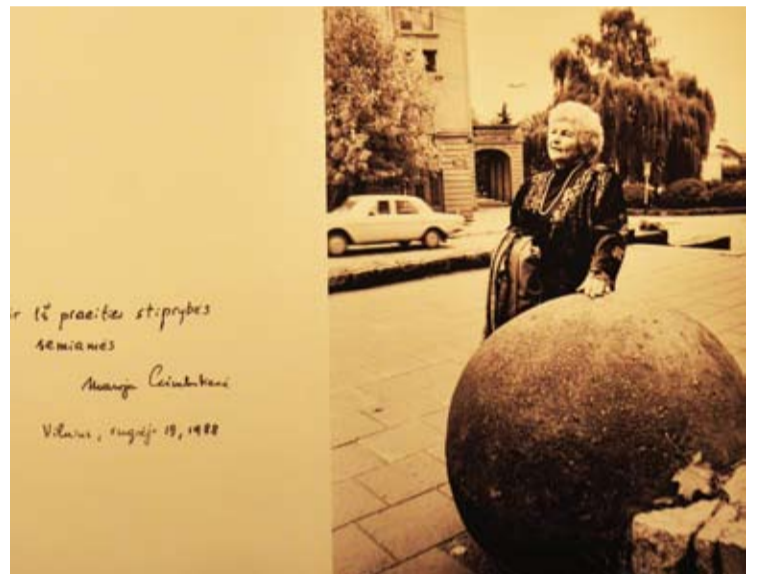 ir iš praeities stiprybės
semiamės
Marija
Vilnius, rugsėjo 19, 1988